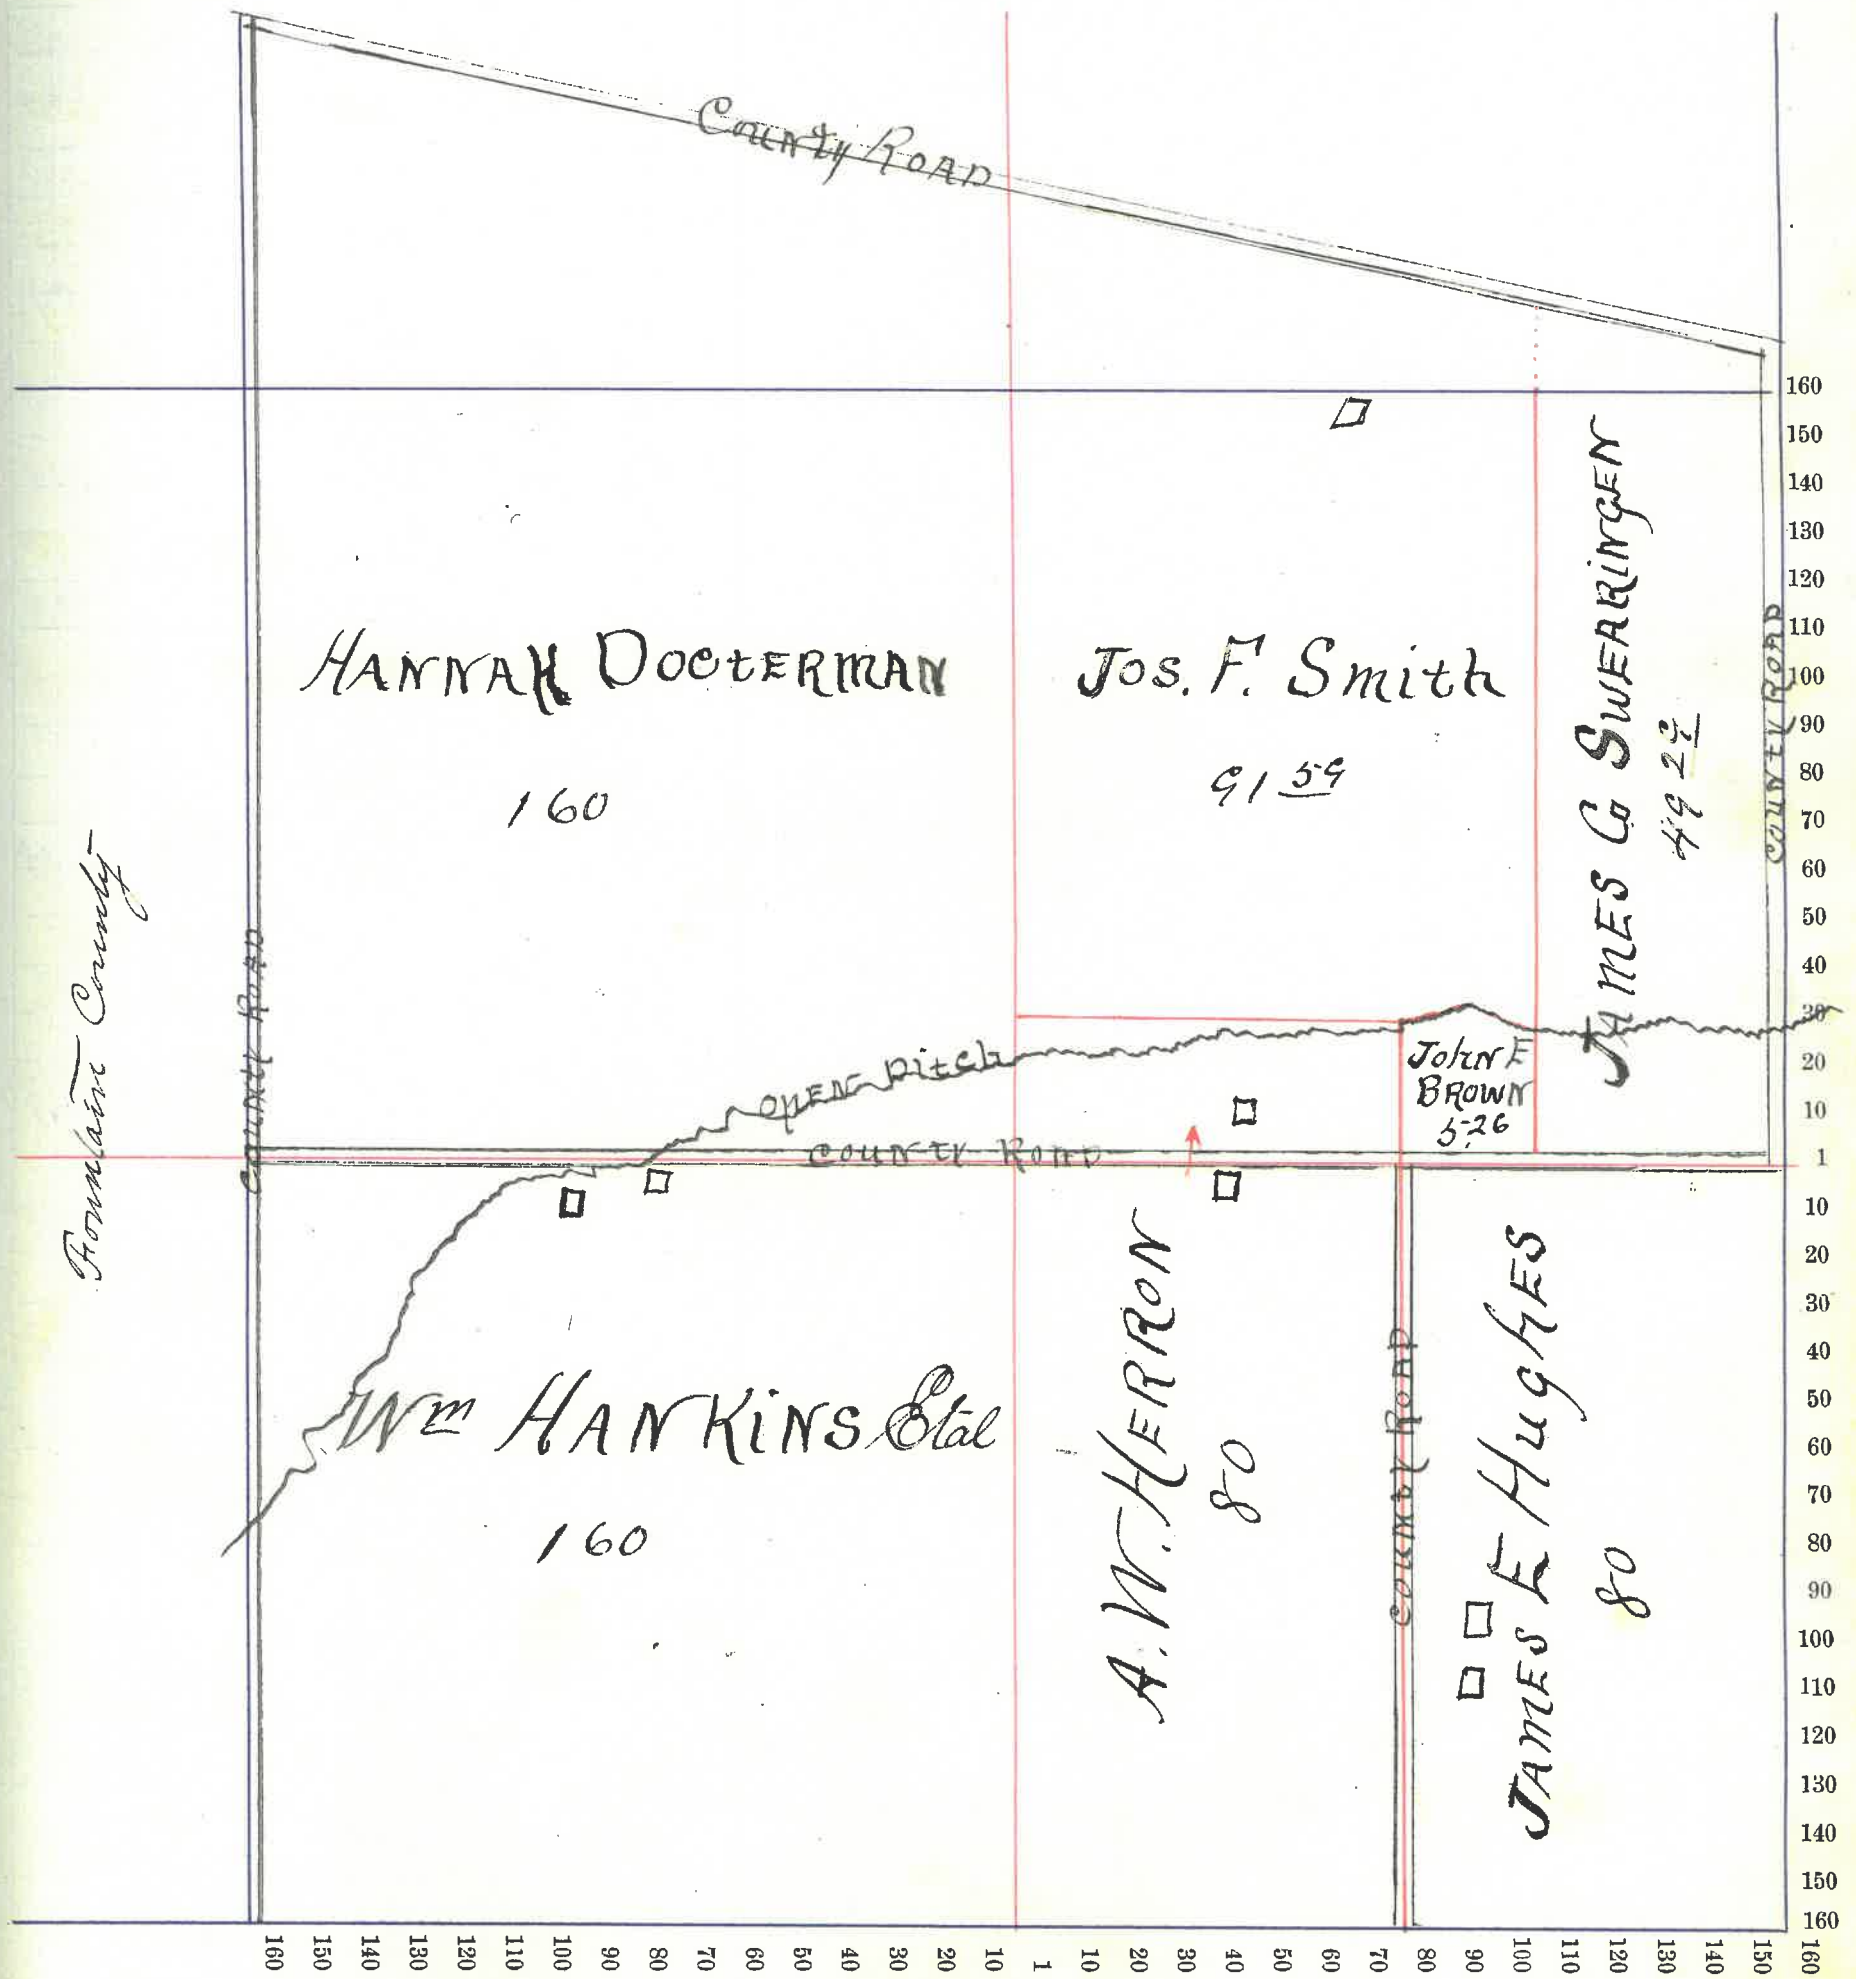 County Road
HANNAH DOCTERMAN
160
Jos. F. Smith
91 59
JAMES G SWEARINGEN
49 25
COUNTY ROAD
Fountain County
COUNTY ROAD
OPEN Ditch
JOHN E
BROWN
5.26
COUNTY ROAD
Wm HANKINS Etal
160
A. W. HERRON
80
COUNTY ROAD
JAMES E HUGHES
80
160
150
140
130
120
110
100
90
80
70
60
50
40
30
20
10
1
10
20
30
40
50
60
70
80
90
100
110
120
130
140
150
160
160 150 140 130 120 110 100 90 80 70 60 50 40 30 20 10 1 10 20 30 40 50 60 70 80 90 100 110 120 130 140 150 160